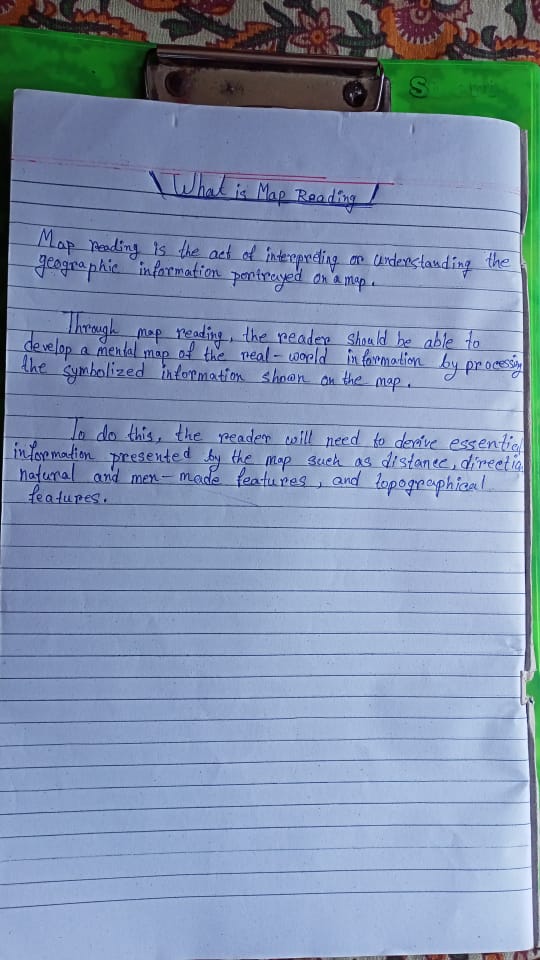 What is Map Reading
Map reading is the act of interpreting or understanding the
geographic information portrayed on a map.
Through map reading, the reader should be able to
develop a mental map of the real-world information by processing
the symbolized information shown on the map.
To do this, the reader will need to derive essential
information presented by the map such as distance, directio
natural and men-made features, and topographical
features.
S